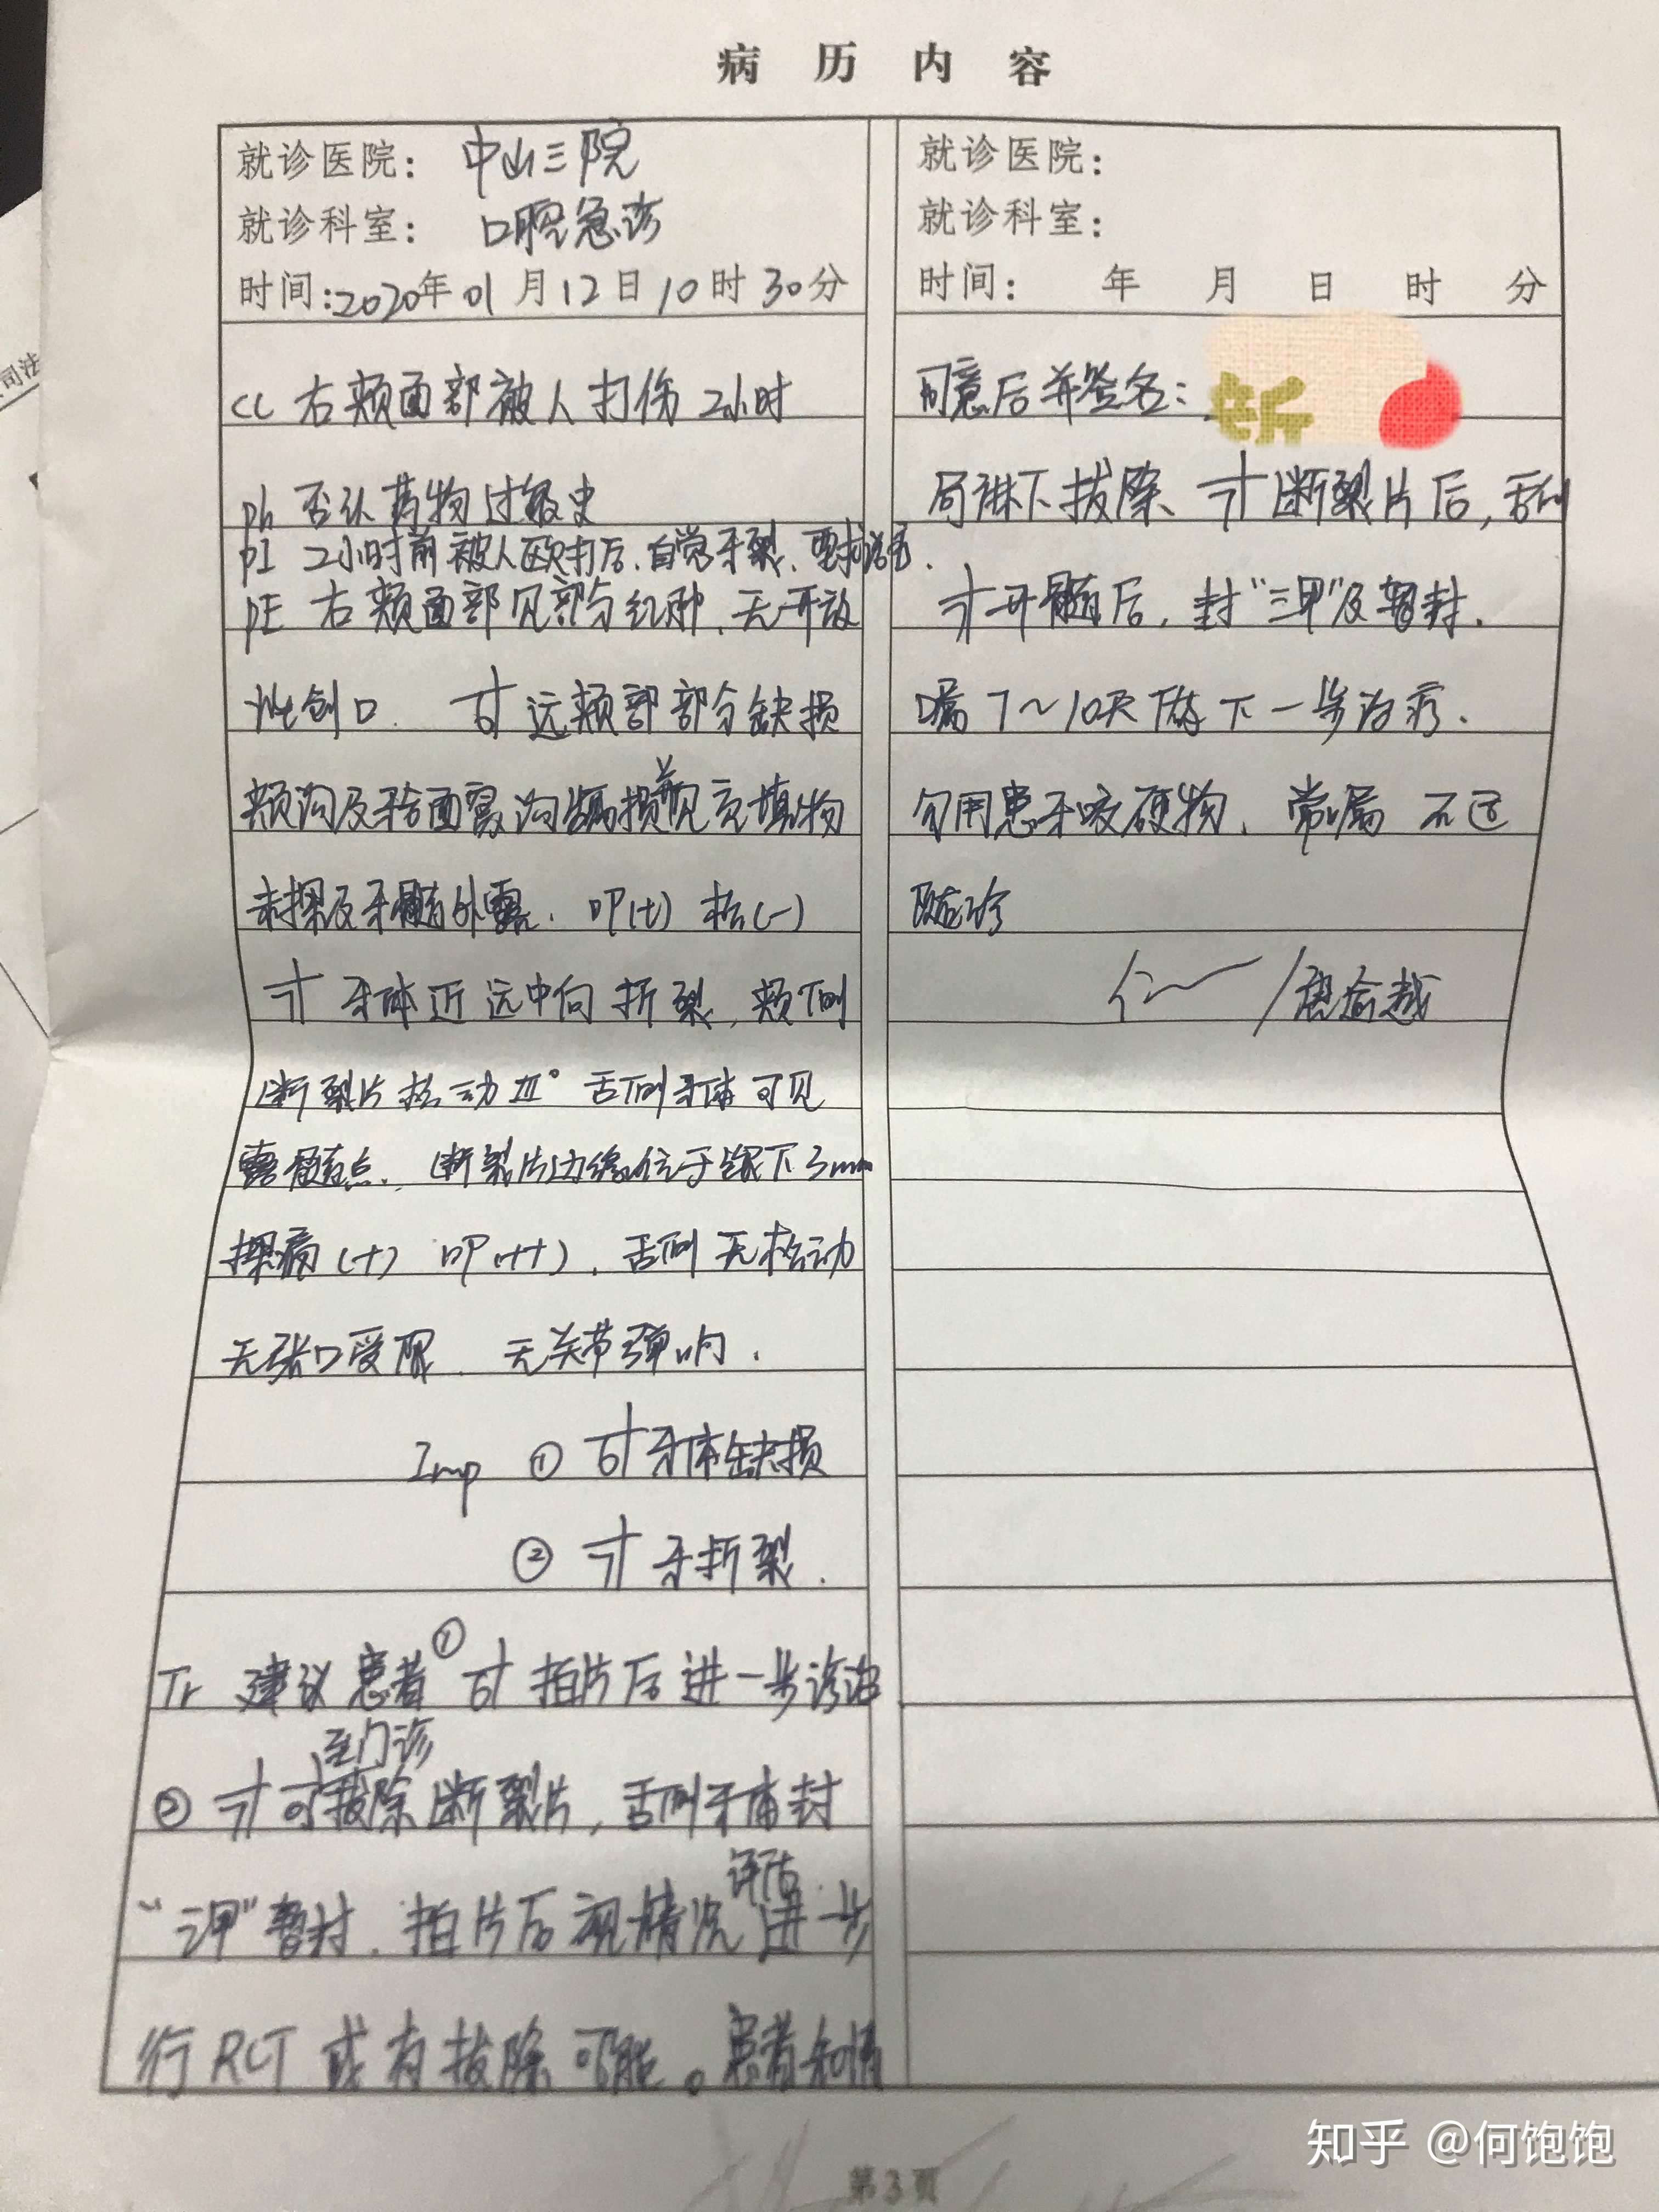 病历内容
就诊医院：中山三院
就诊科室：口腔急诊
时间：2020年01月12日10时30分
CC 右颊面部被人打伤2小时
ph 否认药物过敏史
pI 2小时前被人殴打后，自觉牙裂，要求诊治.
pE 右颊面部见部分红肿，无开放
性创口. 远颊部部分缺损
颊沟及牙合面窝沟龋损并见充填物
未探及牙髓外露. 叩(±) 松(-)
牙体近远中向折裂，颊侧
断裂片松动Ⅲ° 舌侧牙体可见
露髓点. 断裂片边缘位于龈下3mm
探痛(+) 叩(++). 舌侧无松动
无张口受限. 无关节弹响.
Imp ① 牙体缺损
② 牙折裂.
Tr 建议患者① 拍片后进一步诊治
至门诊
② 可拔除断裂片，舌侧牙体封
评估
“三甲”暂封. 拍片后视情况进一步
行RCT或有拔除可能。患者知情
就诊医院：
就诊科室：
时间： 年 月 日 时 分
同意后并签名：
局麻下拔除 断裂片后，舌侧
开髓后，封“三甲”及暂封.
嘱7～10天 下一步治疗.
勿用患牙咬硬物. 常嘱 不适
随诊
第3页
知乎 @何饱饱